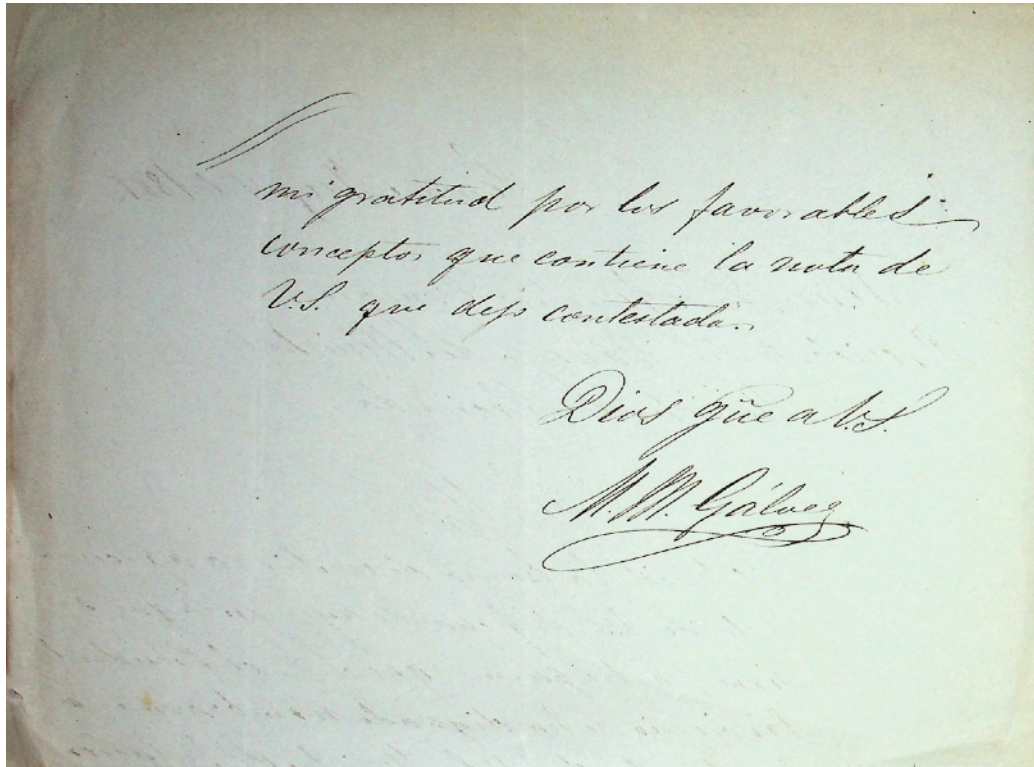 mi gratitud por los favorables
conceptos que contiene la nota de
V.S. que dejo contestada.
Dios gũe a V.S.
M. M. Gálvez